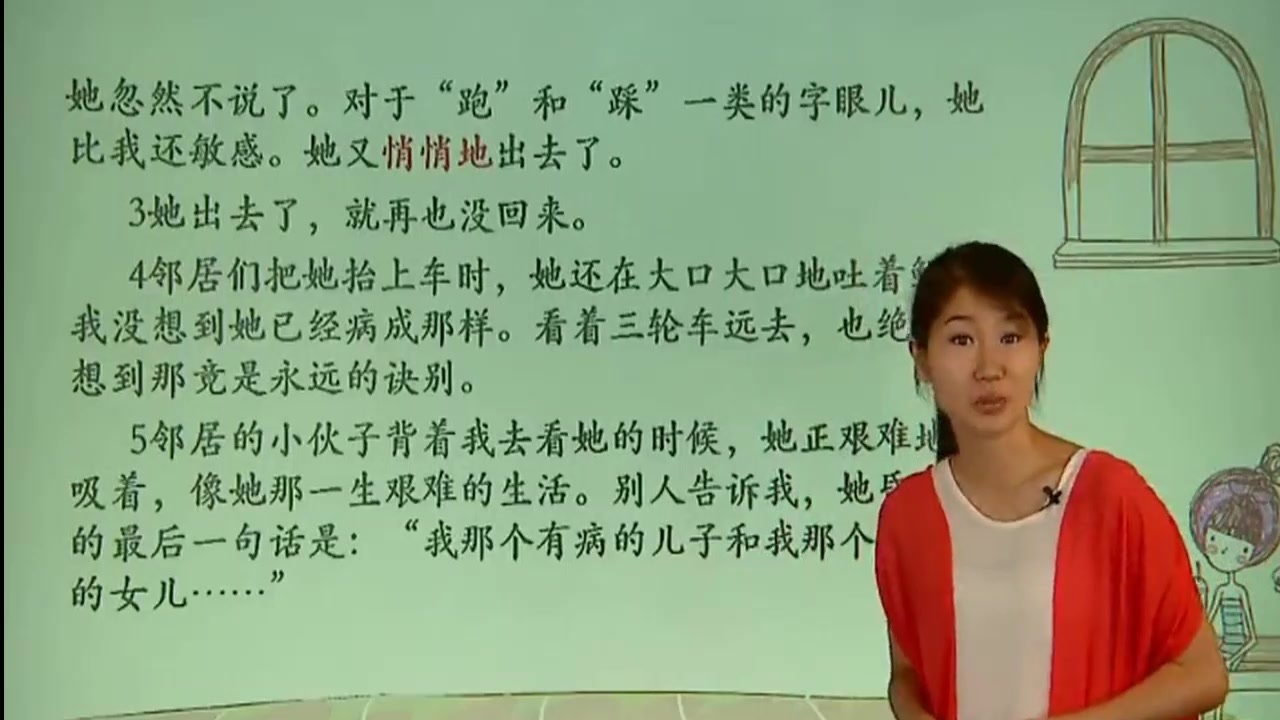 她忽然不说了。对于“跑”和“踩”一类的字眼儿，她
比我还敏感。她又悄悄地出去了。
3她出去了，就再也没回来。
4邻居们把她抬上车时，她还在大口大口地吐着
我没想到她已经病成那样。看着三轮车远去，也绝
想到那竟是永远的诀别。
5邻居的小伙子背着我去看她的时候，她正艰难地
吸着，像她那一生艰难的生活。别人告诉我，她
的最后一句话是：“我那个有病的儿子和我那个
的女儿……”